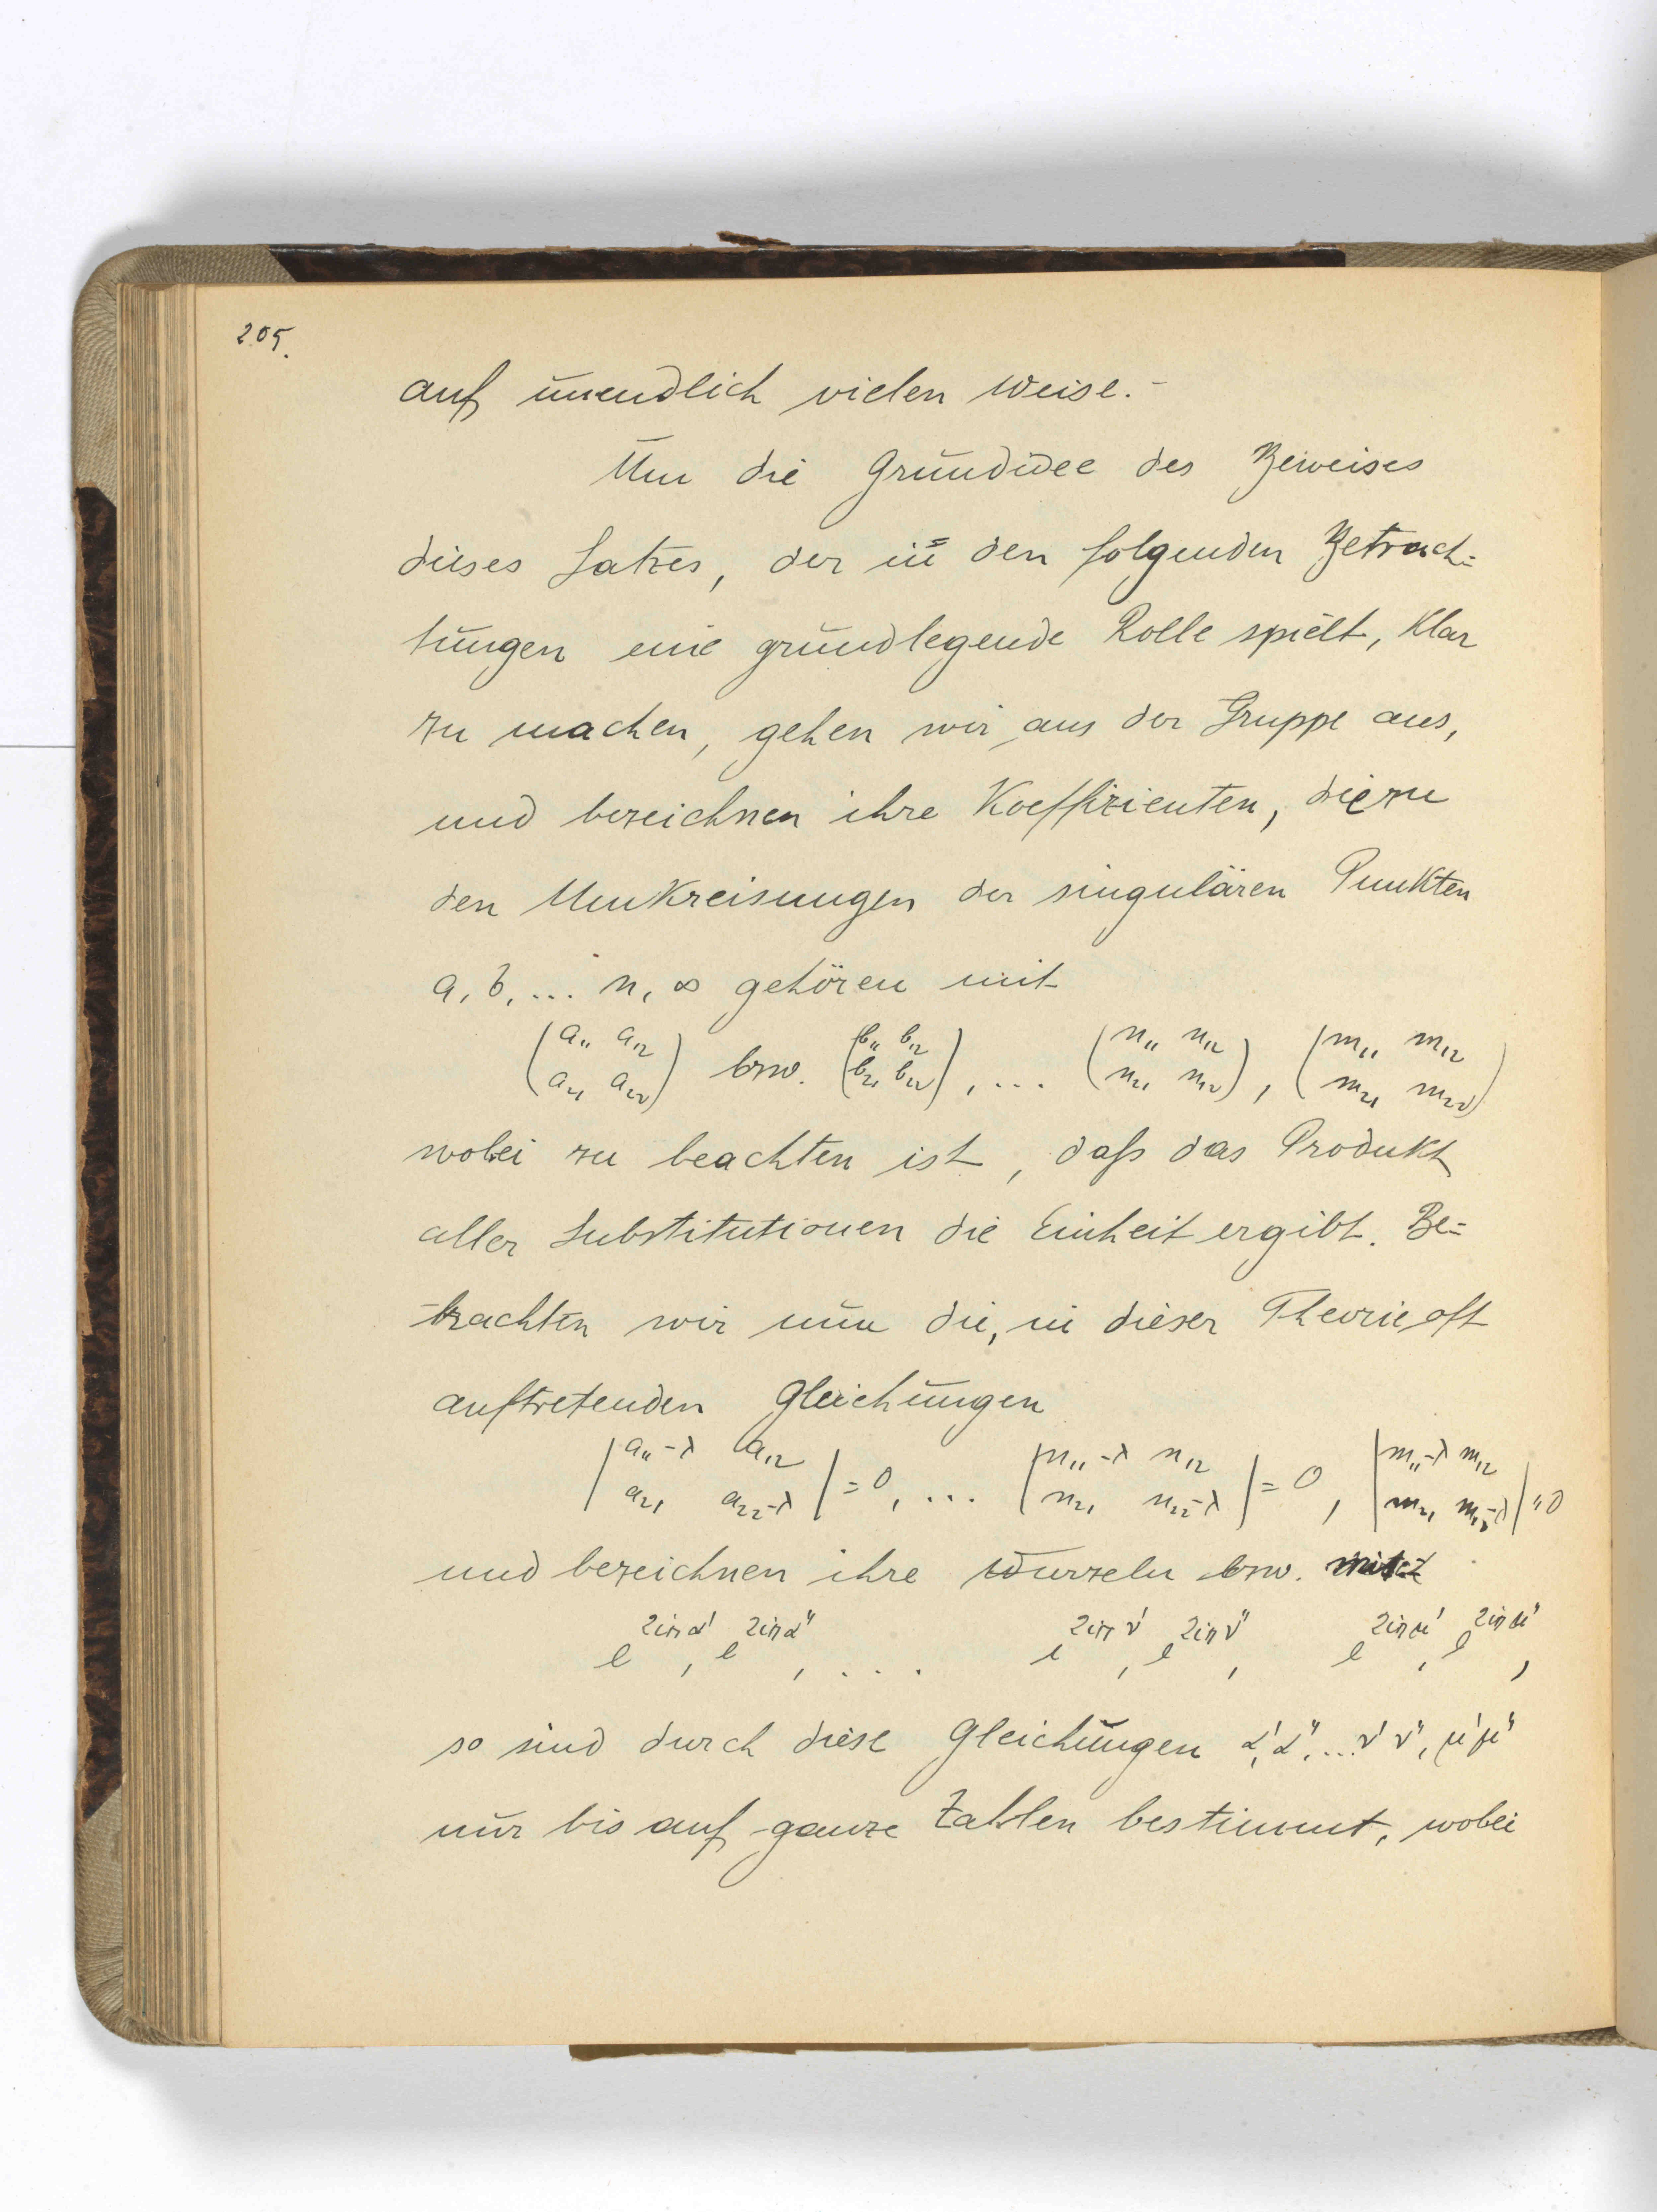 205.
auf unendlich vielen Weise.-
Um die Grundidee des Beweises
dieses Satzes, der in den folgenden Betrach=
tungen eine grundlegende Rolle spielt, klar
zu machen, gehen wir aus der Gruppe aus,
und bezeichnen ihre Koeffizienten, die zu
den Umkreisungen der singulären Punkten
a, b, ... n, ∞ gehören mit
(a₁₁ a₁₂ / a₂₁ a₂₂) bzw. (b₁₁ b₁₂ / b₂₁ b₂₂), ... (n₁₁ n₁₂ / n₂₁ n₂₂), (m₁₁ m₁₂ / m₂₁ m₂₂)
wobei zu beachten ist, daß das Produkt
aller Substitutionen die Einheit ergibt. Be=
trachten wir nun die, in dieser Theorie oft
auftretenden Gleichungen
|a₁₁-λ a₁₂ / a₂₁ a₂₂-λ| = 0, ... |n₁₁-λ n₁₂ / n₂₁ n₂₂-λ| = 0, |m₁₁-λ m₁₂ / m₂₁ m₂₂-λ| = 0
und bezeichnen ihre Wurzeln bzw. mit
e^{2iπα'}, e^{2iπα''}, .... e^{2iπν'}, e^{2iπν''}, e^{2iπμ'}, e^{2iπμ''},
so sind durch diese Gleichungen α', α'', ... ν' ν'', μ' μ''
nur bis auf ganze Zahlen bestimmt, wobei